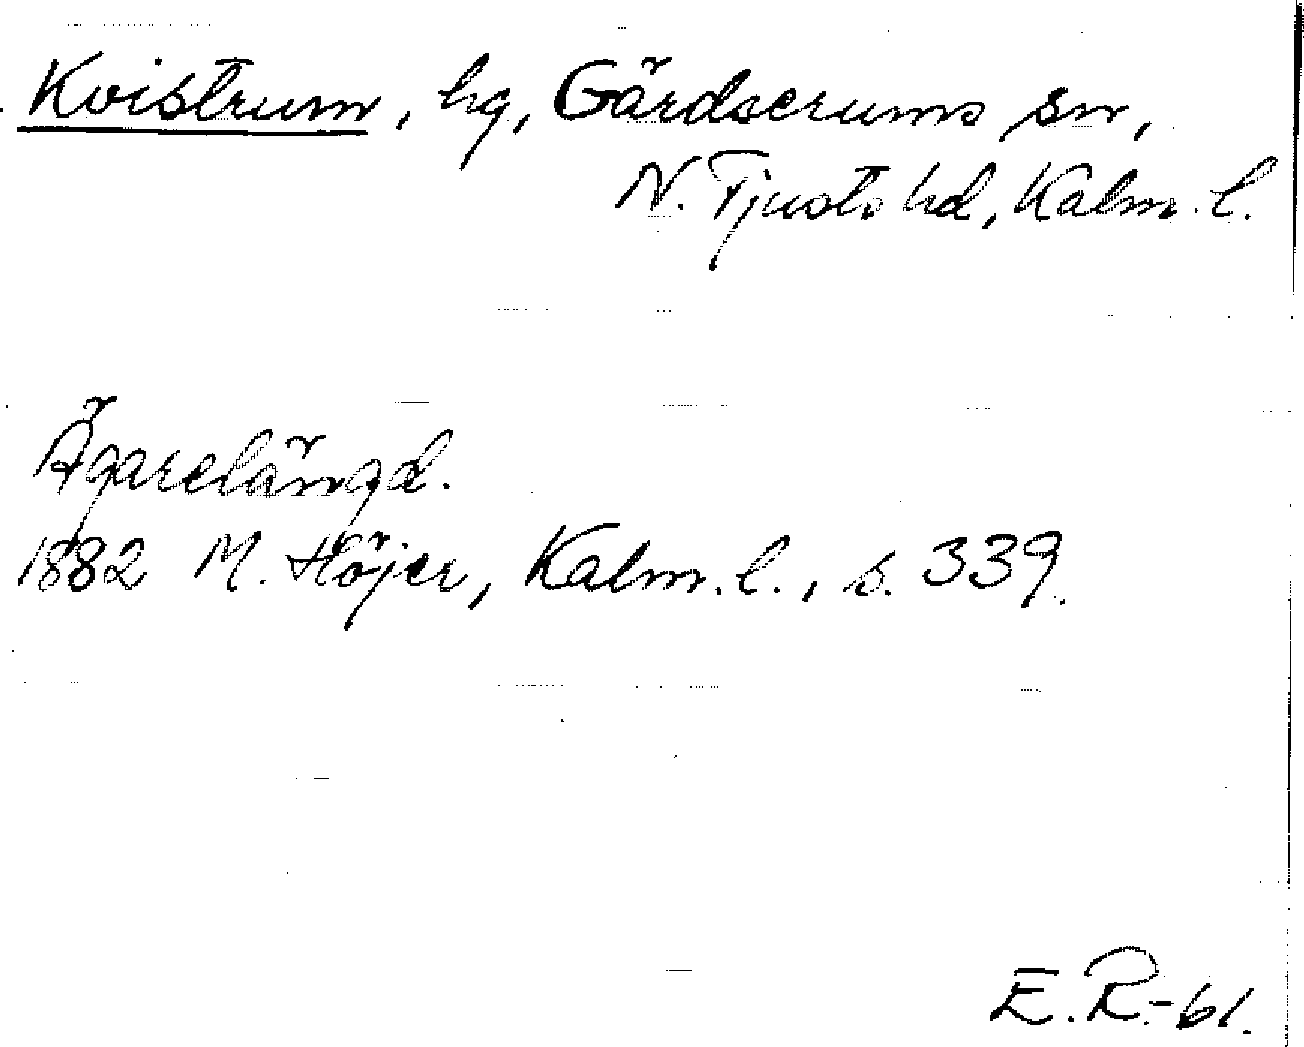 Kvistrum, hg, Gärdserums sn,
N. Tjusts hd, Kalm. l.
Ägarelängd.
1882 M. Höjer, Kalm. l., s. 339.
E.R.-61.